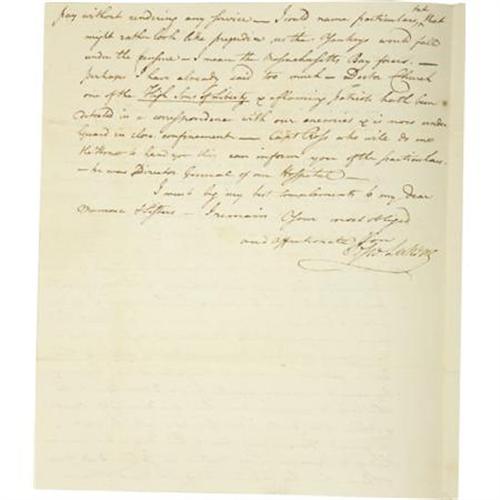 pay without rendering any Service — I could name particulars, but that
might rather look like prejudice as the Yankeys would fall
under the censure — I mean the Massachusetts Bay forces —
perhaps I have already said too much — Doctor Church
one of the High Sons of Liberty & a flaming patriot hath been
detected in a correspondence with our enemies & is now under
Guard in close confinement — Capt Ross who will do me
the Honor to hand you this can inform you of the particulars
— he was Director General of our Hospital —
I must beg my best complements to my dear
Mamma & Sisters — I remain Your most obliged
and affectionate Son